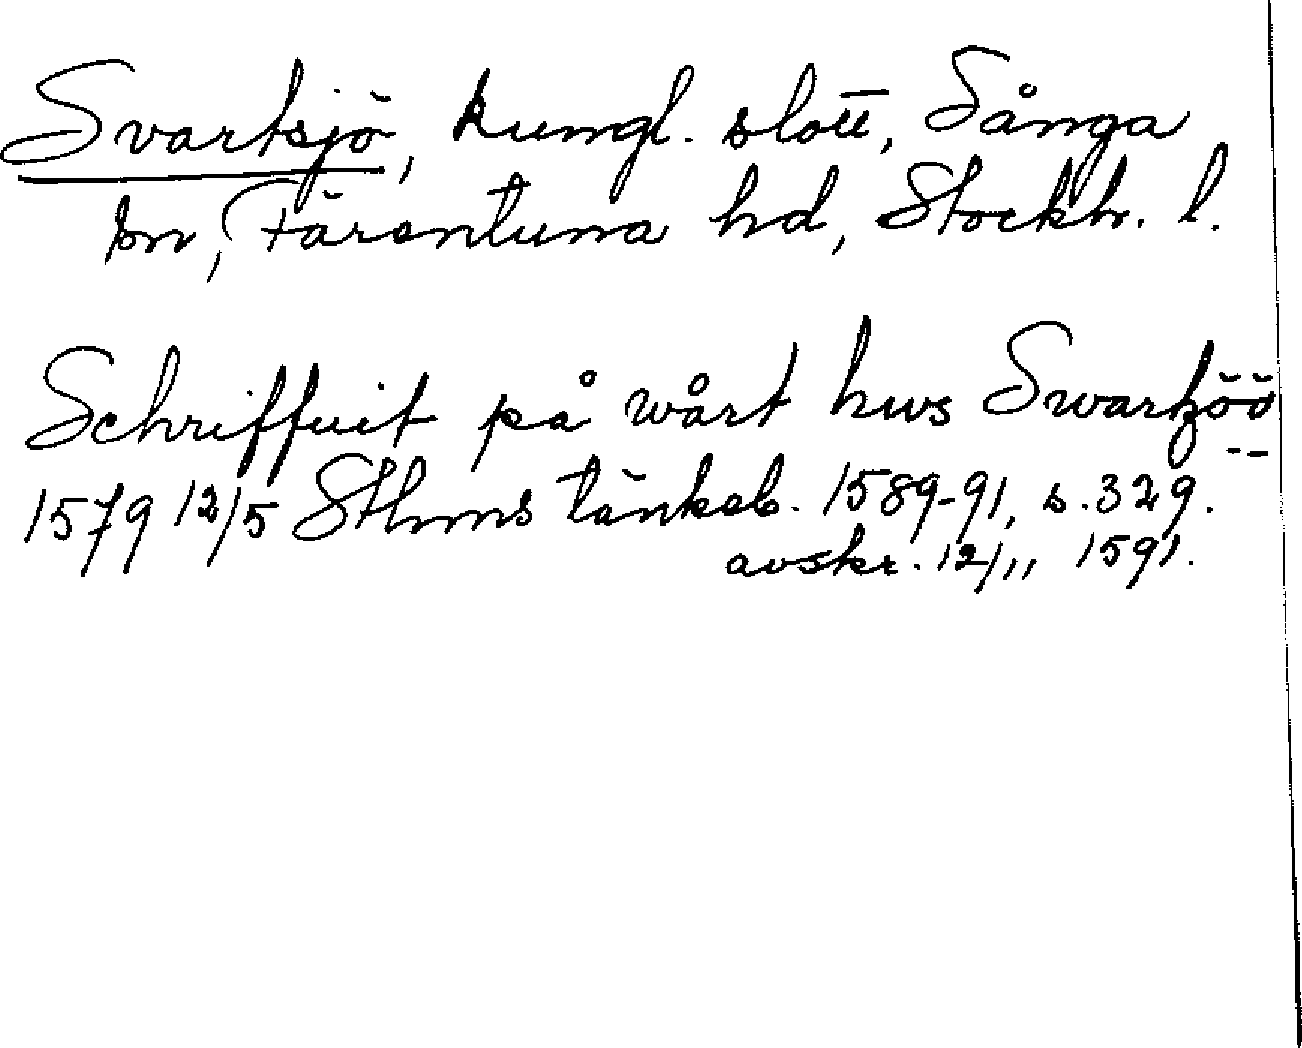 Svartsjö, kungl. slott, Sånga
sn, Färentuna hd, Stockh. l.
Schriffuit på wårt hws Swartzöö
1579 12/5 Sthms tänkeb. 1589-91, s. 329.
avskr. 12/11 1591.